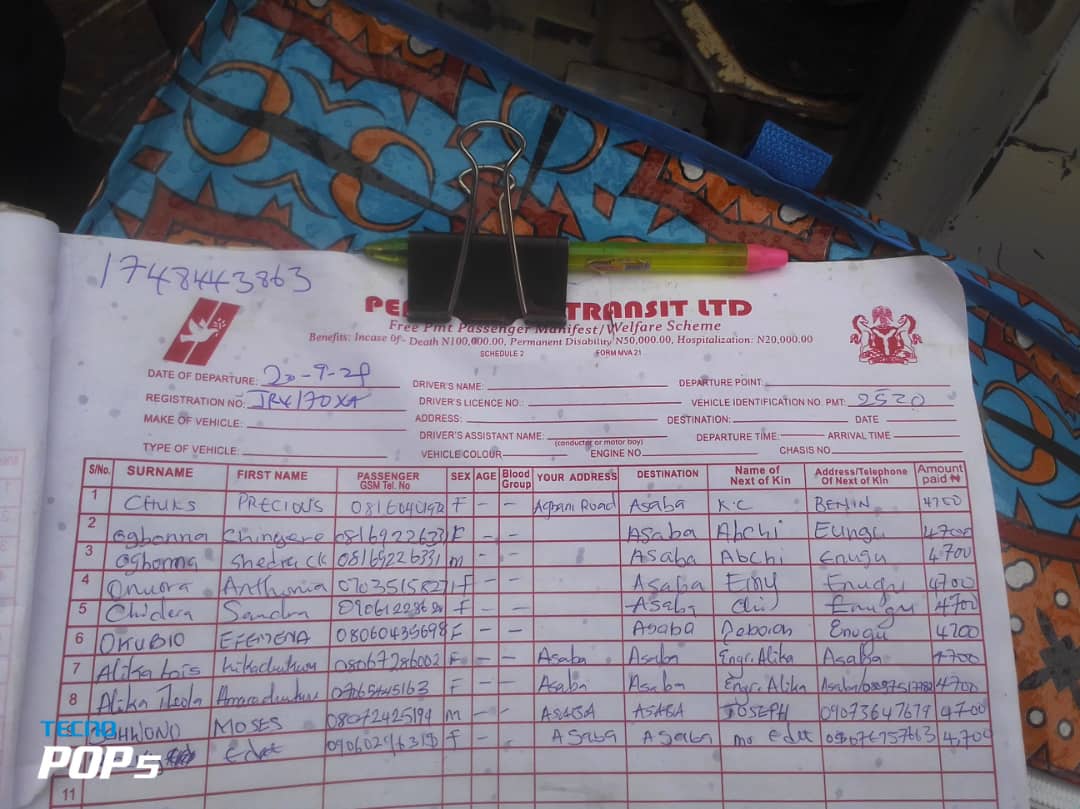 1748443863
PE TRANSIT LTD
Free Pmt Passenger Manifest/Welfare Scheme
Benefits: Incase of:- Death N100,000.00, Permanent Disability N50,000.00, Hospitalization: N20,000.00
SCHEDULE 2 FORM MVA 21
DATE OF DEPARTURE: 20-9-24 DRIVER'S NAME: DEPARTURE POINT:
REGISTRATION NO. DRIVER'S LICENCE NO.: VEHICLE IDENTIFICATION NO. PMT: 2520
MAKE OF VEHICLE: ADDRESS: DESTINATION: DATE
DRIVER'S ASSISTANT NAME: (conductor or motor boy) DEPARTURE TIME: ARRIVAL TIME
TYPE OF VEHICLE: VEHICLE COLOUR ENGINE NO CHASIS NO.
S/No. SURNAME FIRST NAME PASSENGER GSM Tel. No SEX AGE Blood Group YOUR ADDRESS DESTINATION Name of Next of Kin Address/Telephone Of Next of Kin Amount paid ₦
1 CHUKS PRECIOUS F - - Agbani Road Asaba K.C BENIN 4700
2 Ogbonna Chinyere 08169226331 F - - Asaba Abchi Enugu 4700
3 Ogbonna Shedrack 08169226331 m - - Asaba Abchi Enugu 4700
4 Onuora Anthonia 07035158271 f - - Asaba Emy Enugu 4700
5 Chidera Sandra f - - Asaba Enugu 4700
6 OKUBIO EFEMENA 08060435698 F - - Asaba Deborah Enugu 4700
7 Alika Lois 08067286002 F - - Asaba Asaba Engr. Alika Asaba 4700
8 Alika F - - Asaba Asaba Engr. Alika 4700
MOSES 08072425194 m - - ASABA ASABA JOSEPH 09073647679 4700
Edet f - - Asaba Asaba mo Edet 4,700
11
TECNO
POP 5